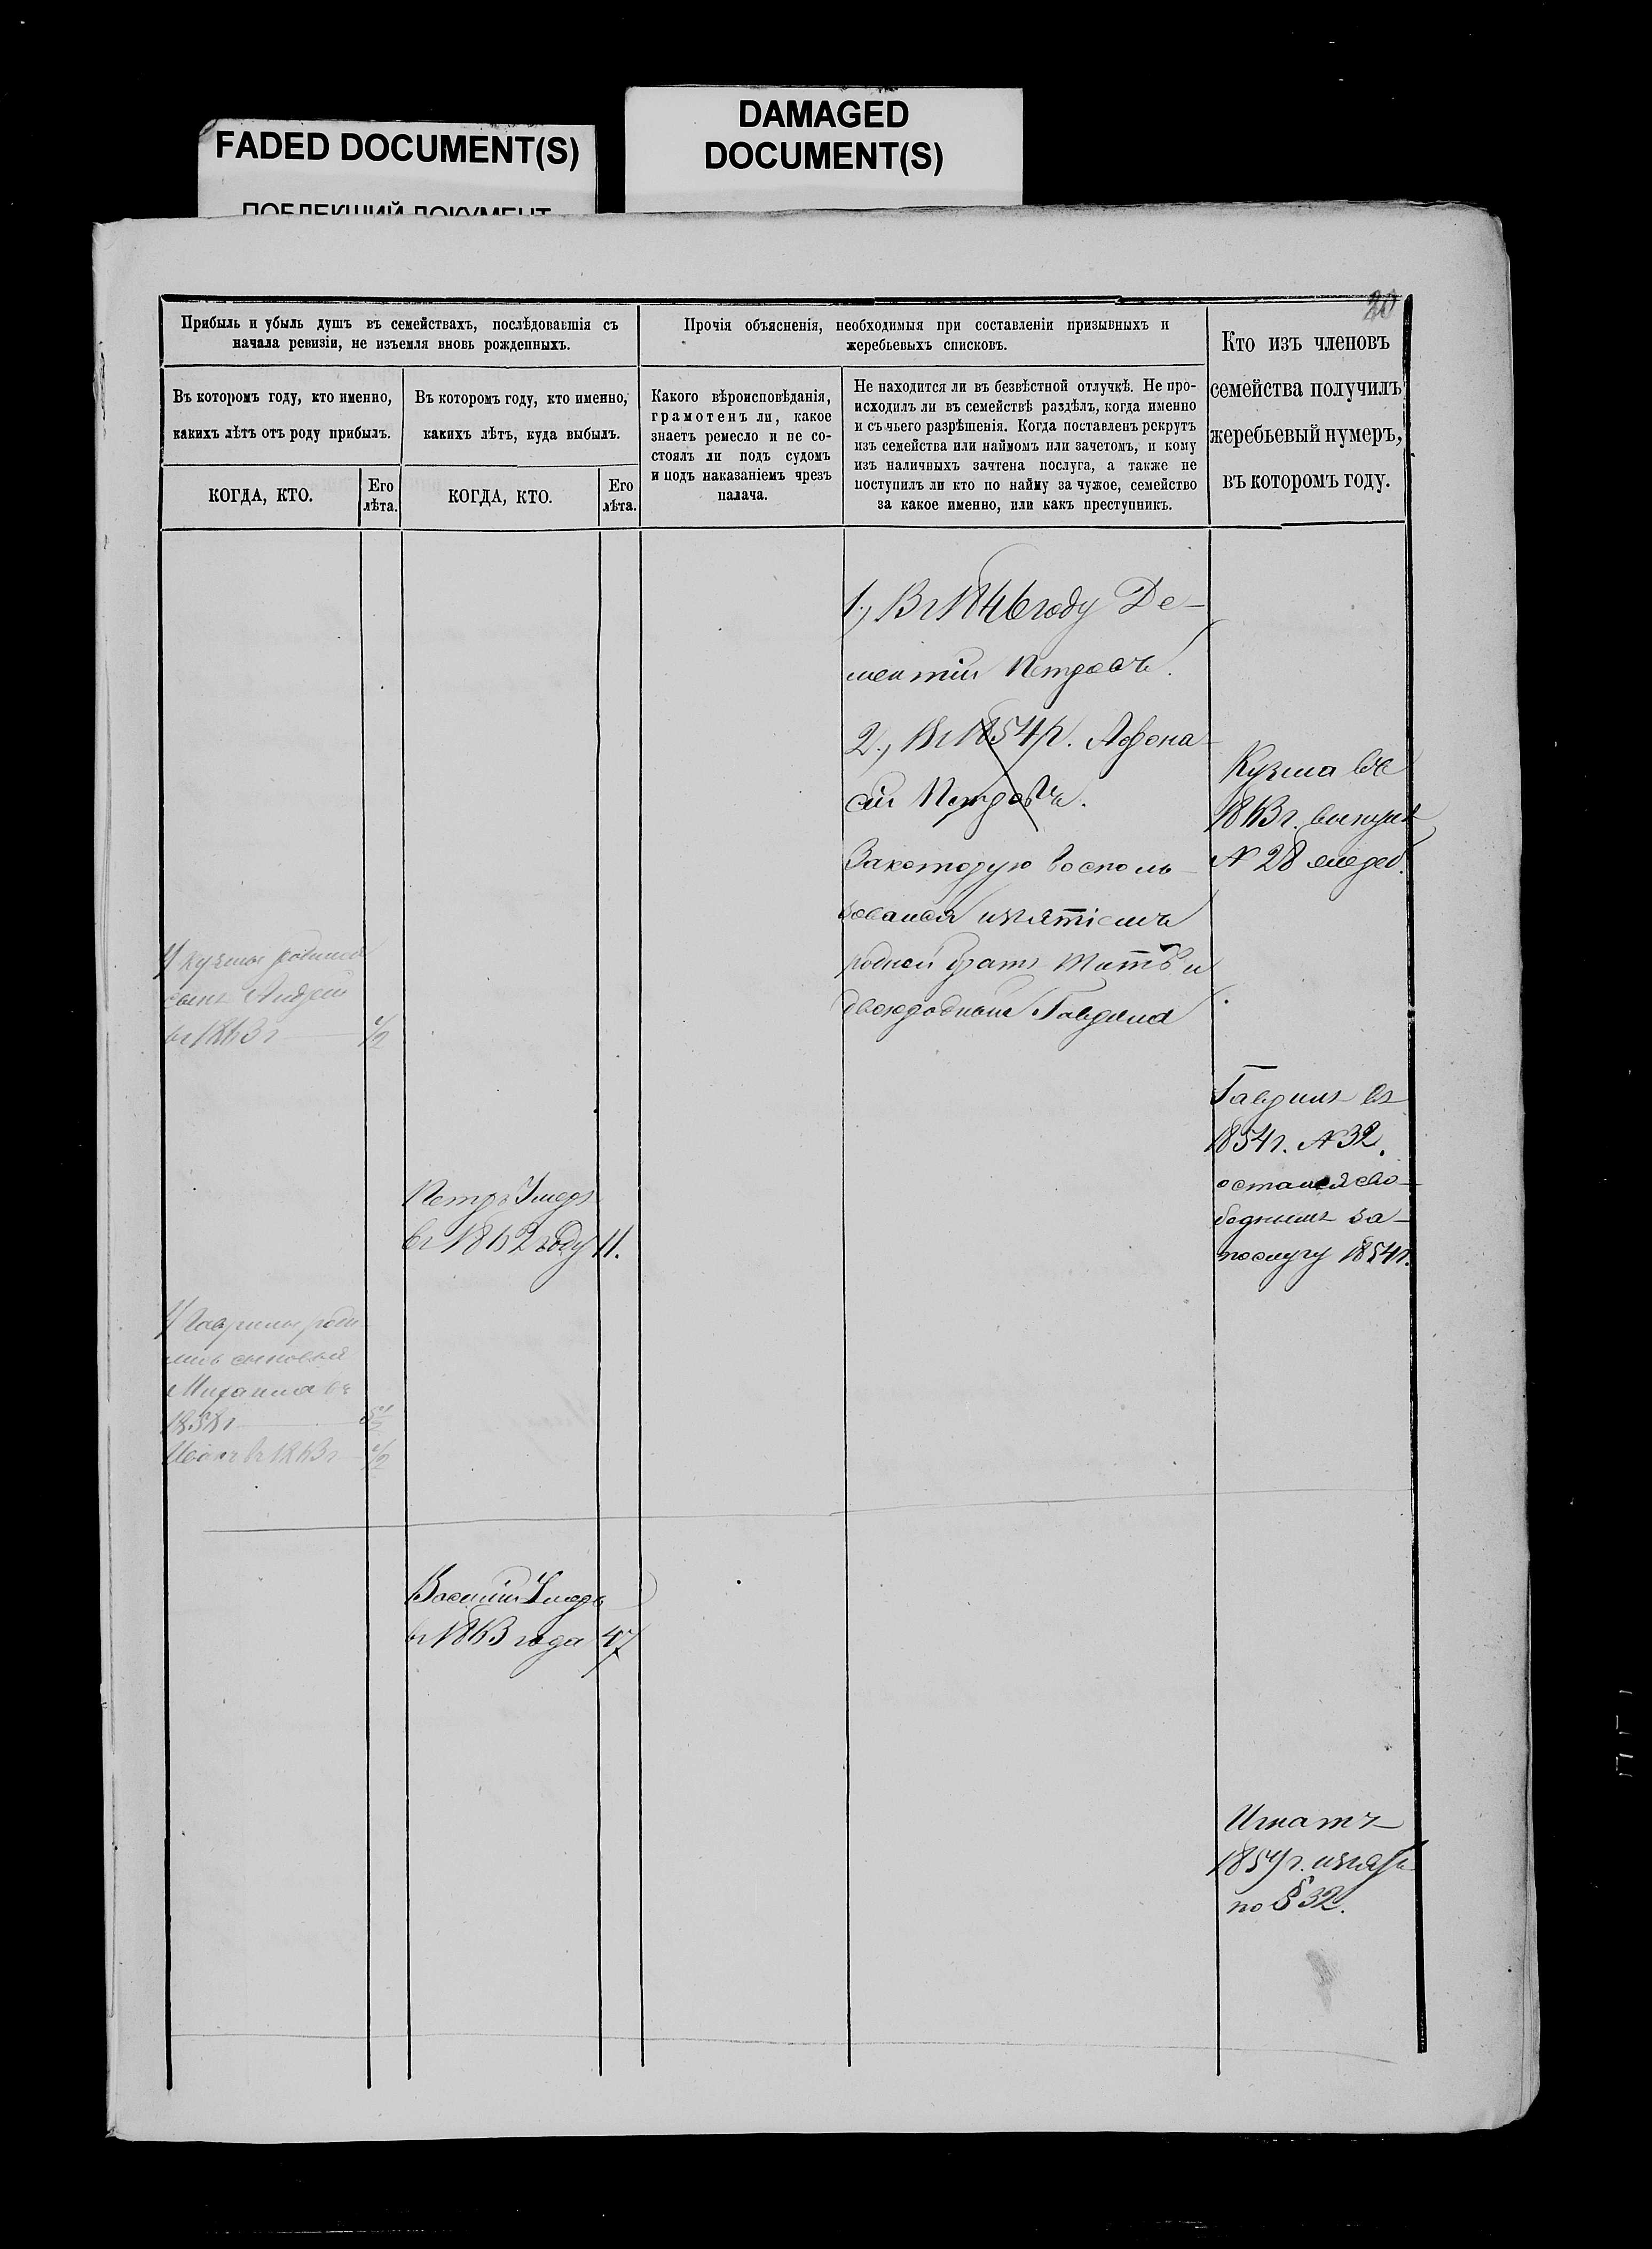 FADED DOCUMENT(S)
ПОБЛЕКШИЙ ДОКУМЕНТ
DAMAGED
DOCUMENT(S)
20
Прибыль и убыль душъ въ семействахъ, послѣдовавшія съ
начала ревизіи, не изъемля вновь рожденныхъ.
Въ которомъ году, кто именно,
какихъ лѣтъ отъ роду прибылъ.
КОГДА, КТО.
Его
лѣта.
Въ которомъ году, кто именно,
какихъ лѣтъ, куда выбылъ.
КОГДА, КТО.
Его
лѣта.
Прочія объясненія, необходимыя при составленіи призывныхъ и
жеребьевыхъ списковъ.
Какого вѣроисповѣданія,
грамотенъ ли, какое
знаетъ ремесло и не со-
стоялъ ли подъ судомъ
и подъ наказаніемъ чрезъ
палача.
Не находится ли въ безвѣстной отлучкѣ. Не про-
исходилъ ли въ семействѣ раздѣлъ, когда именно
и съ чьего разрѣшенія. Когда поставленъ рекрутъ
изъ семейства или наймомъ или зачетомъ, и кому
изъ наличныхъ зачтена послуга, а также не
поступилъ ли кто по найму за чужое, семейство
за какое именно, или какъ преступникъ.
Кто изъ членовъ
семейства получилъ
жеребьевый нумеръ,
въ которомъ году.
1, Въ 1846 году Де-
ментій Петровъ.
2., Въ 1854 г. Афона-
сій Петровъ.
За которую восполь-
зовался изъятіемъ
родной братъ Матвѣй
двоюродный Гаврила
Кузма въ
1863 г. вынулъ
№ 28 жереб.
1/ Кузмы родился
сынъ Андрей
въ 1863 г 1/2
Гаврилъ въ
1854 г. № 32.
остался сво-
боднымъ за
послугу 1854 г.
Петръ Умеръ
въ 1862 году 11.
1/ Гаврилы роди
лись сыновья
Михаила въ
1858 г 5 1/2
Иванъ въ 1863 г 1/2
Василій Умеръ
въ 1863 года 47
Игнатъ
1854 г. изъятъ
по § 32.